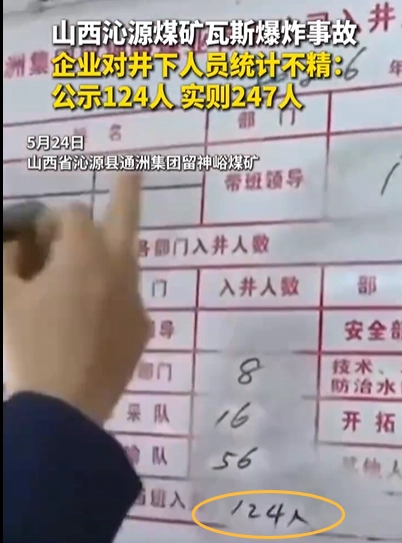 山西沁源煤矿瓦斯爆炸事故
企业对井下人员统计不精:
公示124人 实则247人
洲集
入井
6
年
名
部门
5月24日
山西省沁源县通洲集团留神峪煤矿
带班领导
各部门入井人数
门 入井人数 部
导 安全部
部门 8 技术、
防治水
采队 16 开拓
队 56 其他人
班入 124人